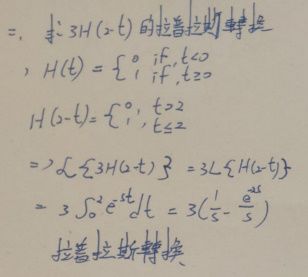 二、求 3H(2-t) 的拉普拉斯轉換
, H(t) = { 0 if, t<0
1 if, t≥0
H(2-t) = { 0, t>2
1, t≤2
=> L{3H(2-t)} = 3L{H(2-t)}
= 3 ∫₀² e^{-st} dt = 3(1/s - e^{-2s}/s)
拉普拉斯轉換